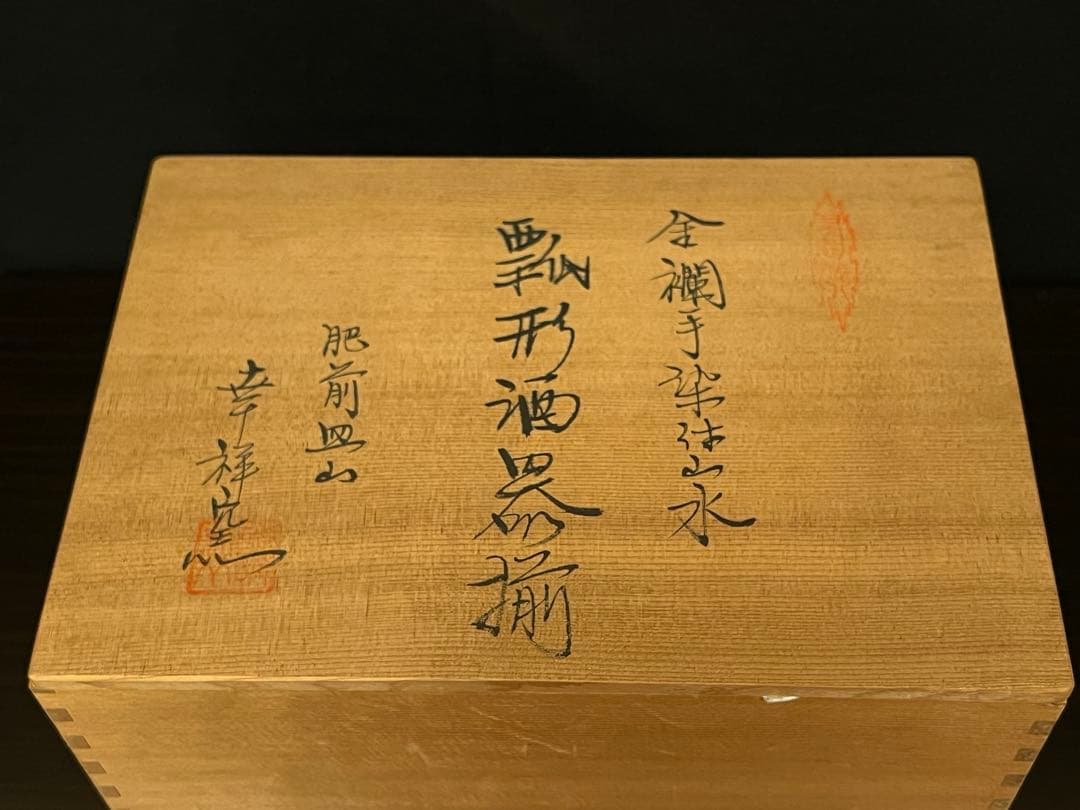 金襴手染付山水
瓢形酒器揃
肥前皿山
幸祥窯